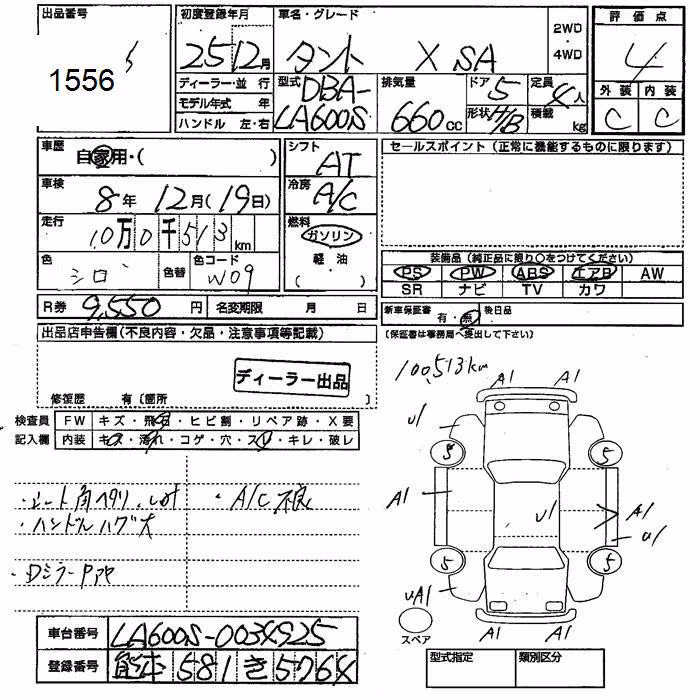 出品番号
1556
初度登録年月
25 12月
車名・グレード
タント X SA
2WD
4WD
評価点
4
外装 内装
C C
ディーラー・並行
モデル年式 年
ハンドル 左・右
型式
DBA-
LA600S
排気量
660cc
ドア 5
形状 H/B
定員 4人
積載 kg
車歴
自家用・( )
車検
8年 12月(19日)
走行
10万0千513km
色
シロ
色替
色コード
W09
シフト
AT
冷房
A/C
燃料
ガソリン
軽油
( )
セールスポイント(正常に機能するものに限ります)
装備品(純正品に限り○をつけてください)
PS PW ABS エアB AW
SR ナビ TV カワ
R券 9,550円
名変期限 月 日
新車保証書
有・無
後日品
(保証書は事務局へ提出して下さい)
出品店申告欄(不良内容・欠品・注意事項等記載)
ディーラー出品
修復歴 有(箇所
100,513km
検査員
記入欄
FW キズ・飛石・ヒビ割・リペア跡・X要
内装 キズ・汚れ・コゲ・穴・スレ・キレ・破レ
・シート角ヘタリ、
・A/C不良
・ハンドルハゲ大
・Dミラー
A1 A1
U1
5 5
A1
U1
A1
U1
5 5
UA1
A1 A1
スペア
車台番号 LA600S-0034925
登録番号 熊本 581 き 5764
型式指定
類別区分